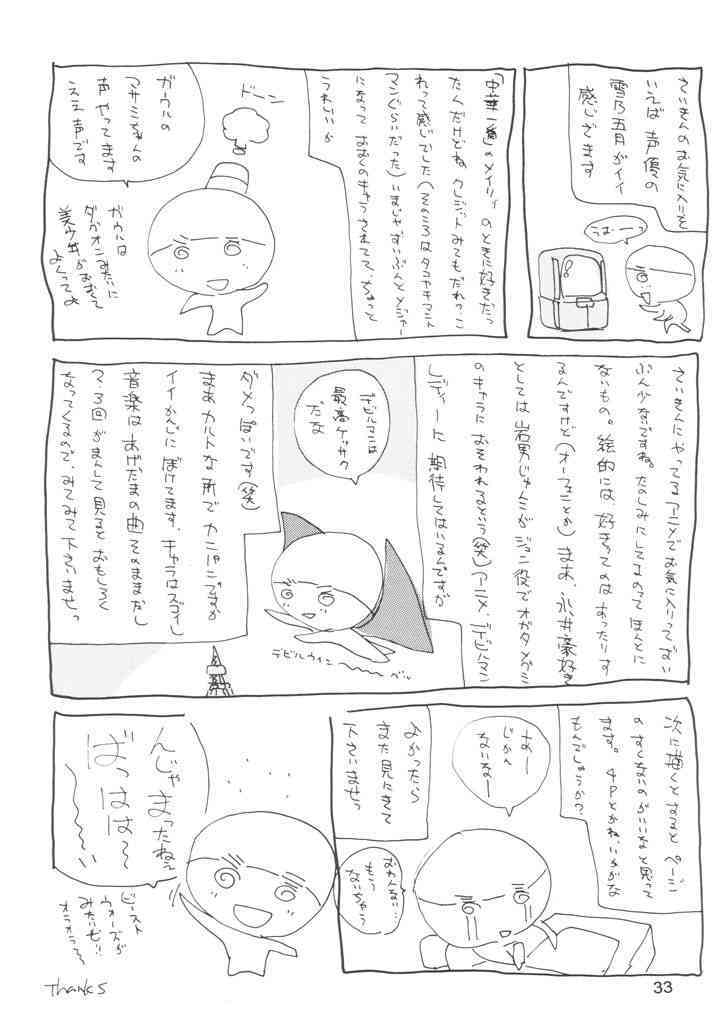 さいきんのお気に入りと
いえば 声優の
雪乃五月がイイ
感じざます
うはーっ
「中華一番」のメイリィ のときに好きだっ
たんだけどね クレジットみてもだれ?っこ
われって感じでした(そのころはタコヤキマント
マンぐらいだった) いまじゃ、ずいぶんとメジャー
になって おおくのキャラされてて、ちょっと
うれしいか
ドーン
ガウルの
マサミちゃんの
声 やってます
ええ声です
ガウルは
ダガオニみたいに
美少女がおおくて
よくってよ
さいきんにやってるアニメでお気に入りって ずい
ぶん少ないですね。たのしみにしてるのって ほんとに
ないもの。絵的には 好きってのは あったりす
るんですけど(オーフェンとか) まあ、永井豪好き
としては 岩男じゅんこが ジュン役で オガタメグミ
のキャラに おそわれるという(笑)アニメ、デビルマン
レディーに 期待してはいるんですが
デビルマンは
最高ケッサク
だな
デビルウイン
ダメっぽいです(笑)
まあ カルトな所で カンパニですか
イイかんじに ぼけてます。キャラはスゴイし
音楽は あげだまの曲 そのままだし
2、3回がまんして見ると おもしろく
なってくるので、みてみて下さいませっ
次に描くとすると ページ
のすくないのがいいなと思って
ます。4Pとかね、いかがな
もんでしょうか?
あー
じかん
ないなー
よかったら
また見にきて
下さいませっ
おわんない…
もう
ないちゃう
んじゃ
まったねぇ
ばっはは〜い
ビースト
ウォーズが
みたいぜ!!
オラオラ〜
Thanks
33